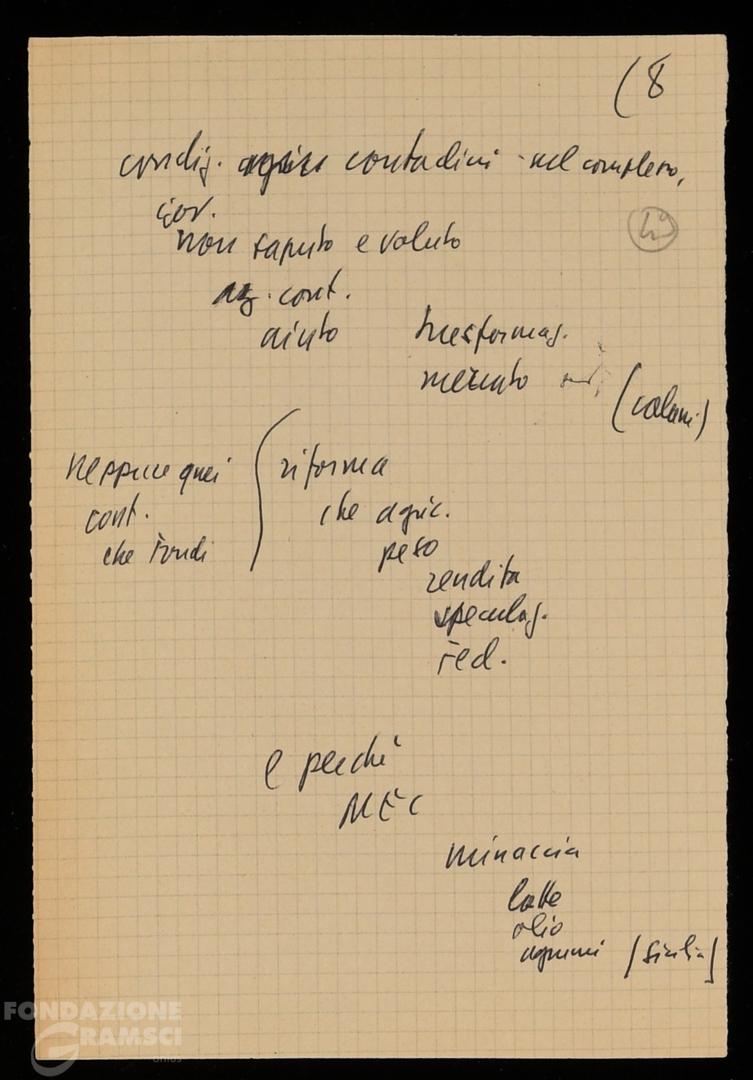 (8
condiz. contadini - nel complesso,
gov.
non saputo e voluto
az. cont.
aiuto trasformaz.
mercato
neppure quei riforma
cont. che agric.
che fondi peso
rendita
speculaz.
fed.
e perché
MEC
minaccia
latte
olio
agrumi (Sicilia)
FONDAZIONE
GRAMSCI
ONLUS